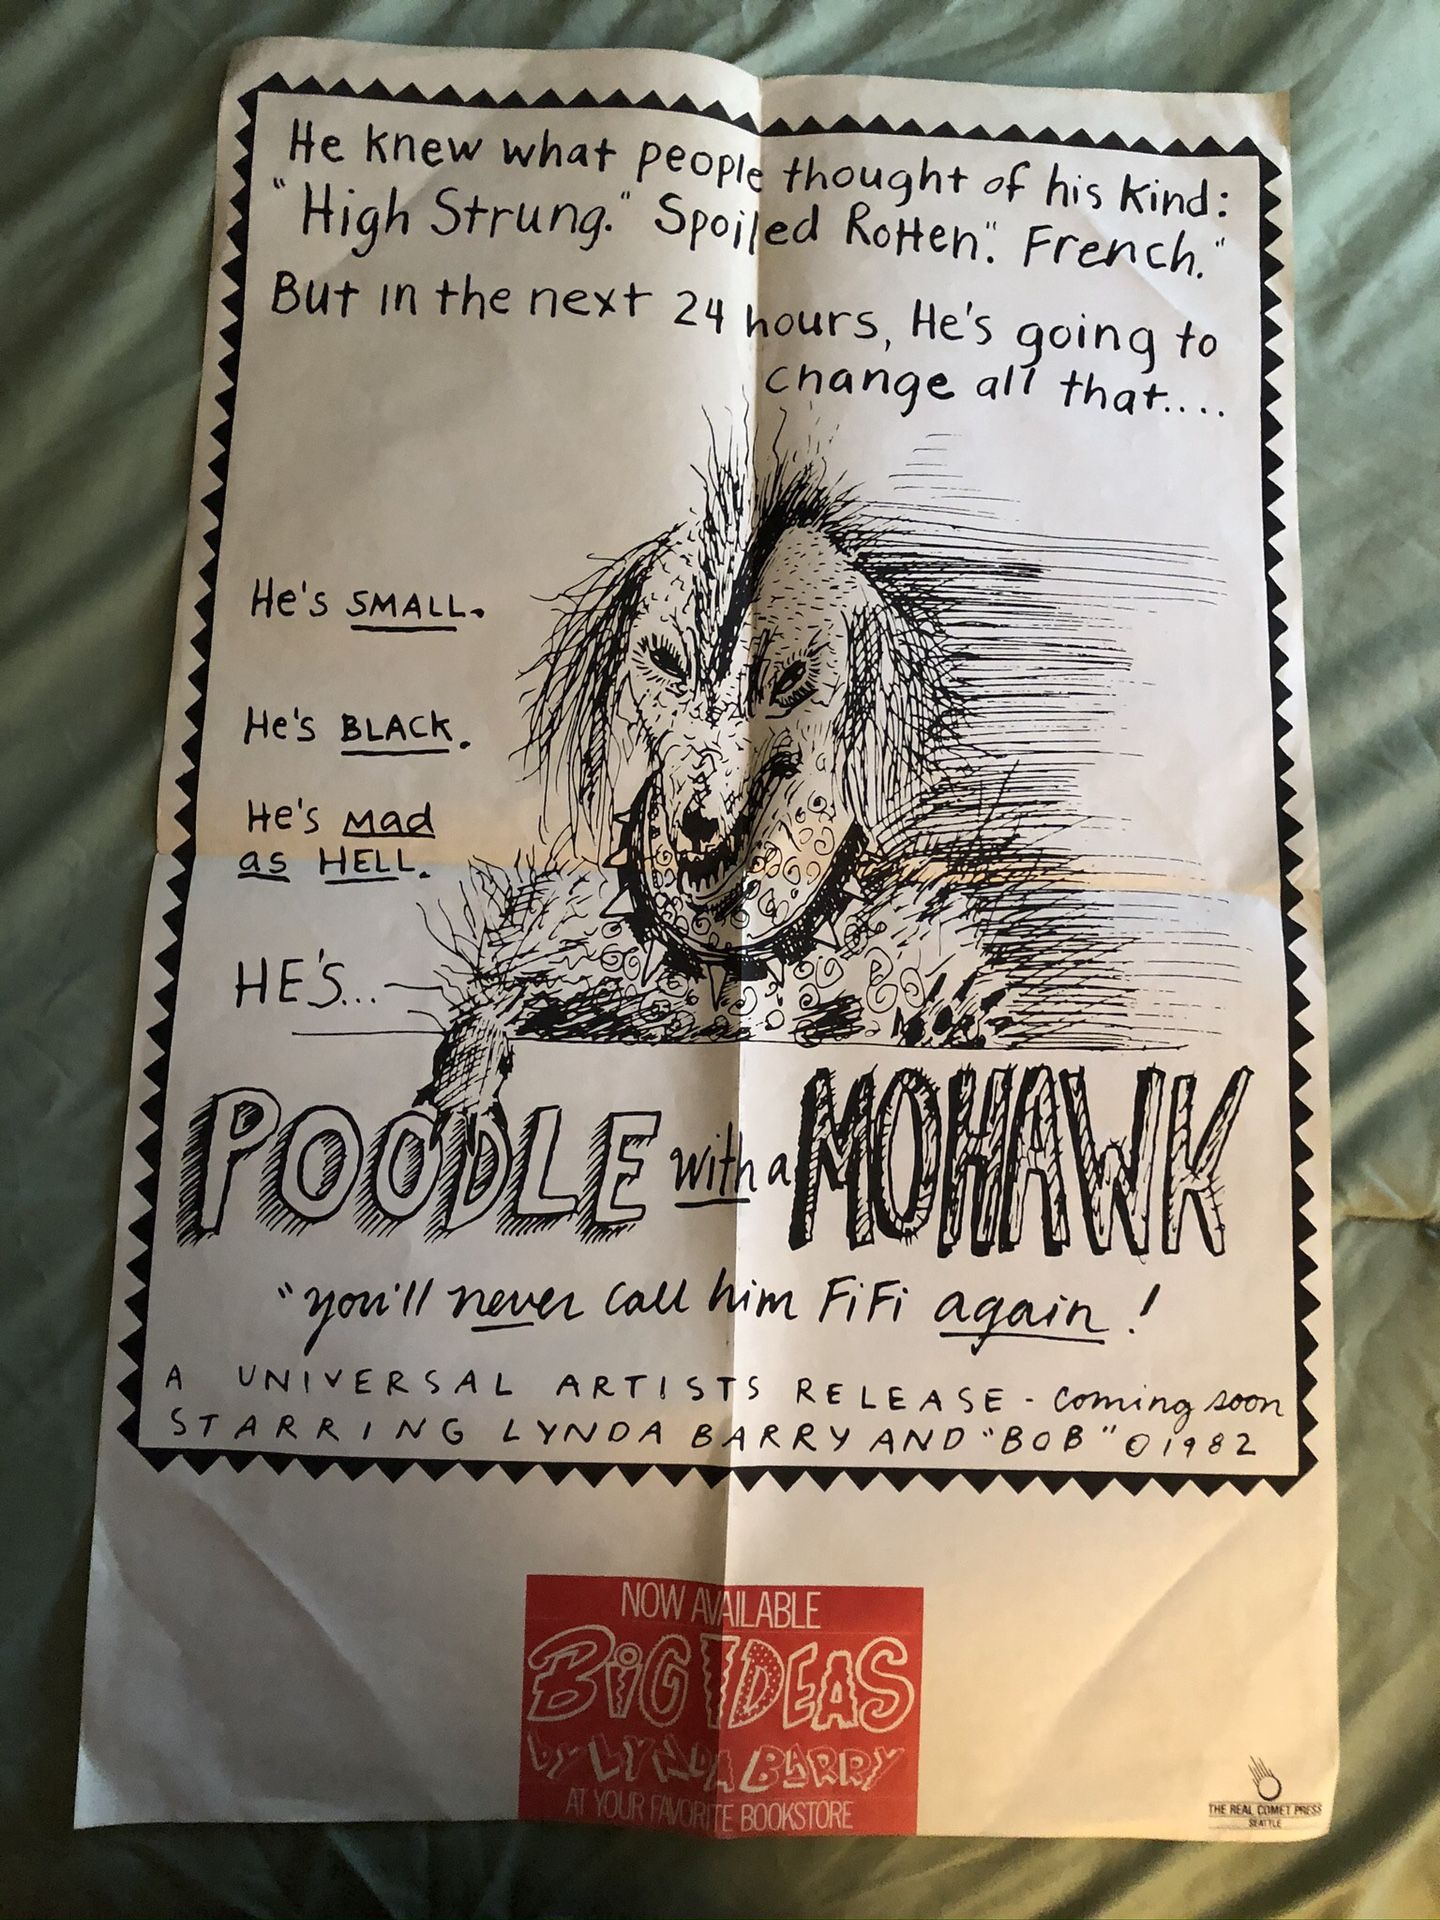 He knew what people thought of his kind:
"High Strung." Spoiled Rotten". French."
But in the next 24 hours, He's going to
change all that....
He's SMALL.
He's BLACK.
He's mad
as HELL.
HE'S...
POODLE with a MOHAWK
"you'll never call him FiFi again!
A UNIVERSAL ARTISTS RELEASE - coming soon
STARRING LYNDA BARRY AND "BOB" © 1982
NOW AVAILABLE
BiG IDEAS
by LYNDA BARRY
AT YOUR FAVORITE BOOKSTORE
THE REAL COMET PRESS
SEATTLE